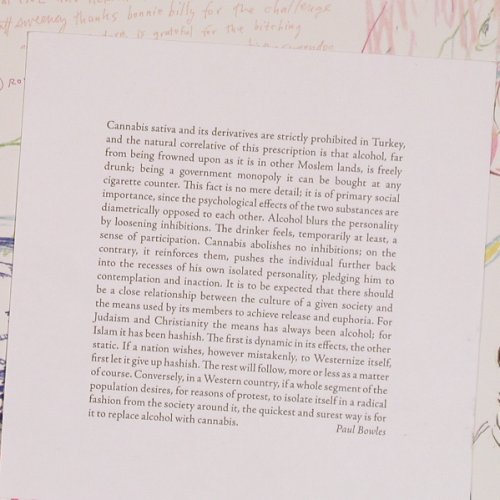 sweeney thanks bonnie billy for the challenge
is grateful for the bitching
Cannabis sativa and its derivatives are strictly prohibited in Turkey,
and the natural correlative of this prescription is that alcohol, far
from being frowned upon as it is in other Moslem lands, is freely
drunk; being a government monopoly it can be bought at any
cigarette counter. This fact is no mere detail; it is of primary social
importance, since the psychological effects of the two substances are
diametrically opposed to each other. Alcohol blurs the personality
by loosening inhibitions. The drinker feels, temporarily at least, a
sense of participation. Cannabis abolishes no inhibitions; on the
contrary, it reinforces them, pushes the individual further back
into the recesses of his own isolated personality, pledging him to
contemplation and inaction. It is to be expected that there should
be a close relationship between the culture of a given society and
the means used by its members to achieve release and euphoria. For
Judaism and Christianity the means has always been alcohol; for
Islam it has been hashish. The first is dynamic in its effects, the other
static. If a nation wishes, however mistakenly, to Westernize itself,
first let it give up hashish. The rest will follow, more or less as a matter
of course. Conversely, in a Western country, if a whole segment of the
population desires, for reasons of protest, to isolate itself in a radical
fashion from the society around it, the quickest and surest way is for
it to replace alcohol with cannabis.
Paul Bowles